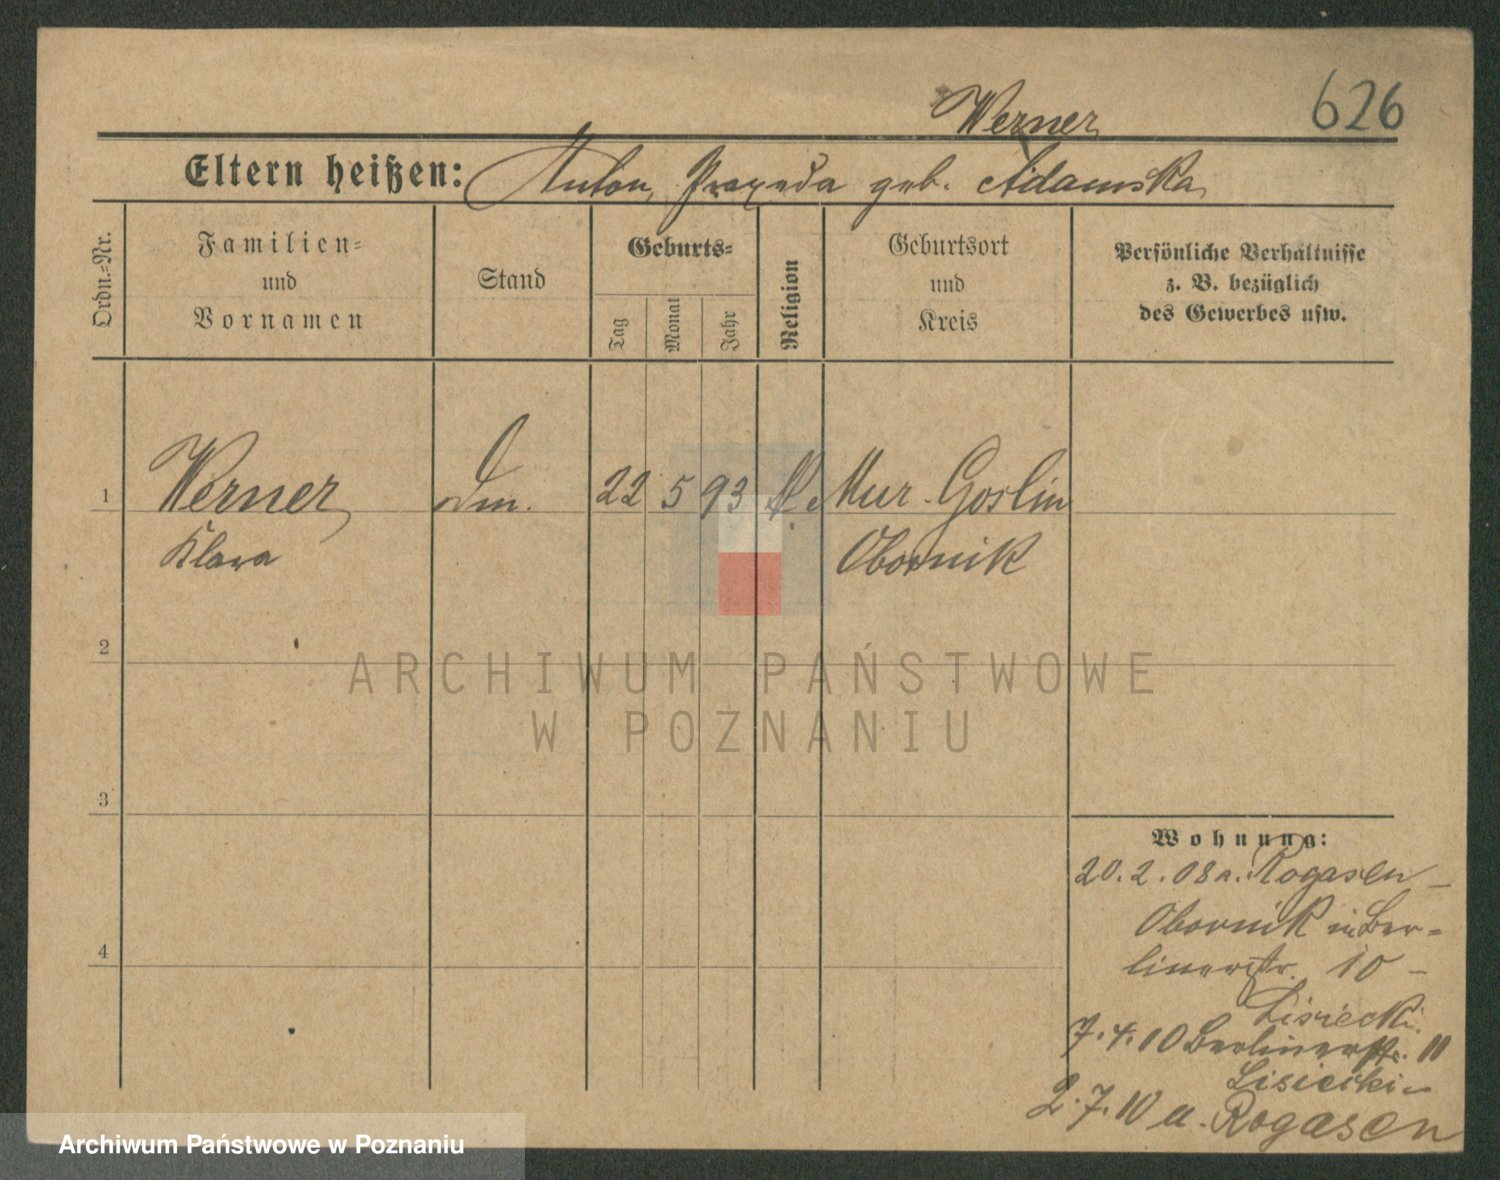 626
Werner
Eltern heißen: Anton, Praxeda geb. Adamska
Ordn.-Nr.
Familien-
und
Vornamen
Stand
Geburts-
Tag
Monat
Jahr
Religion
Geburtsort
und
Kreis
Persönliche Verhältnisse
z. B. bezüglich
des Gewerbes usw.
1 Werner 22 5 93 K. Mur. Goslin
Klara Obornik
2
3
4
Wohnung:
20.2.08 a. Rogasen –
Obornik in Ber=
linerstr. 10 –
Lisiecki.
7.4.10 Berlinerstr. 11
Lisiecki –
2.7.10 a. Rogasen
ARCHIWUM PAŃSTWOWE
W POZNANIU
Archiwum Państwowe w Poznaniu